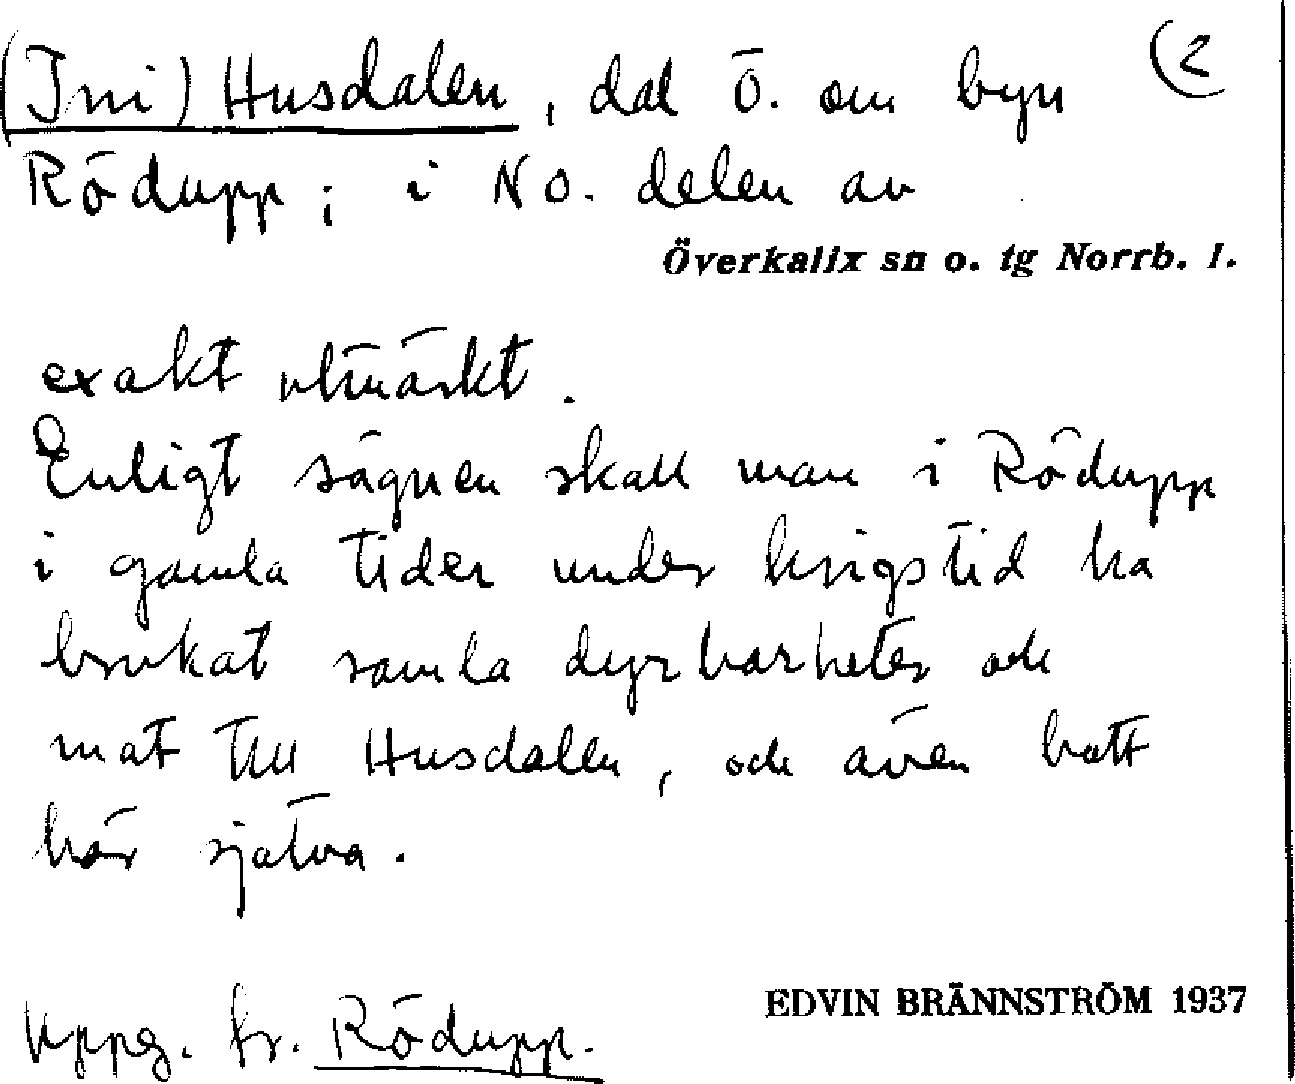 (Ini) Husdalen, dal ö. om byn (2
Rödupp; i NO. delen av
Överkalix sn o. tg Norrb. l.
exakt utmärkt.
Enligt sägnen skall man i Rödupp
i gamla tider under krigstid ha
brukat samla dyrbarheter och
mat till Husdalen, och även bott
här själva.
EDVIN BRÄNNSTRÖM 1937
Uppg. fr. Rödupp.